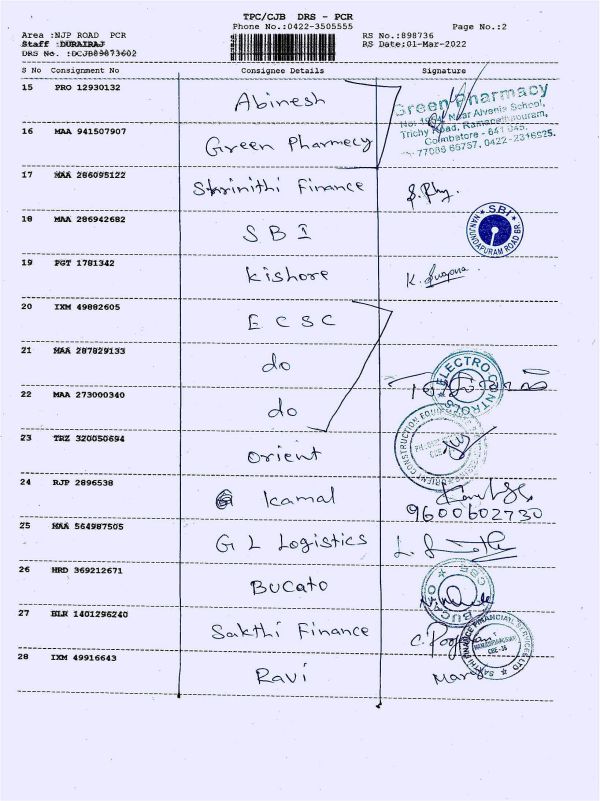 TPC/CJB DRS - PCR
Area :NJP ROAD PCR Phone No.:0422-3505555 Page No.:2
Staff :DURAIRAJ RS No.:898736
DRS No. :DCJB89873602 RS Date;01-Mar-2022
S No Consignment No Consignee Details Signature
15 PRO 12930132 Abinesh
Green Pharmacy
Near Alvania School,
Trichy Road, Ramanathapuram,
Coimbatore - 641 045.
77086 66757, 0422-2316525.
16 MAA 941507907 Green Pharmecy
17 MAA 286095122 Shrinithi Finance
18 MAA 286942682 SBI
SBI
NANJUNDAPURAM ROAD BR.
19 PGT 1781342 Kishore K. Suguna
20 IXM 49882605 ECSC
21 MAA 287829133 do
ELECTRO CONTROLS
22 MAA 273000340 do
23 TRZ 320050694 Orient
ORIENT CONSTRUCTION
24 RJP 2896538 Kamal
9600602730
25 MAA 564987505 G L Logistics
26 HRD 369212671 BUCATO
BUCATO CBE
27 BLR 1401296240 Sakthi Finance
SAKTHI FINANCE FINANCIAL SERVICES LTD
CBE-36
28 IXM 49916643 Ravi